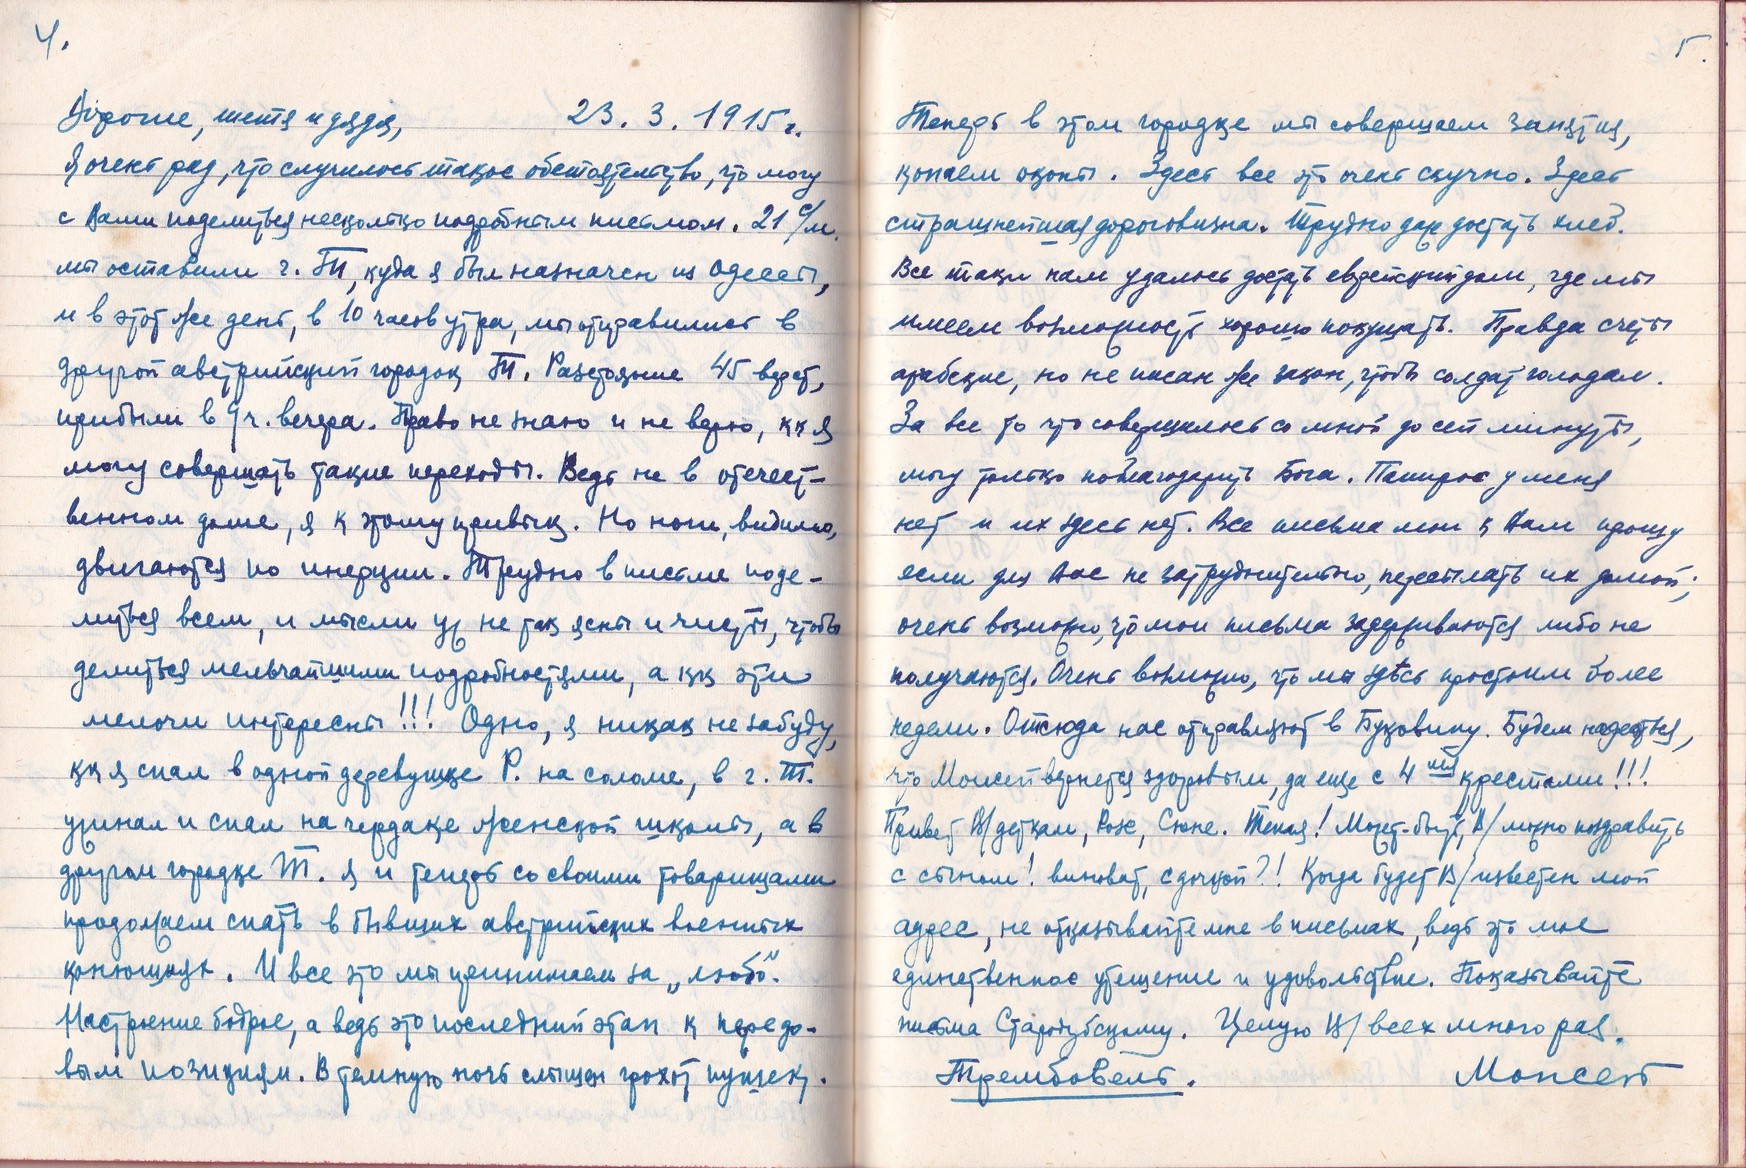 4.
Дорогие, тетя и дядя, 23. 3. 1915 г.
Я очень рад, что случилось такое обстоятельство, что могу
с Вами поделиться несколько подробным письмом. 21 с/м.
мы оставили г. Т, куда я был назначен из Одессы,
и в этот же день, в 10 часов утра, мы отправились в
другой австрийский городок Т. Разстояние 45 верст,
прибыли в 9 ч. вечера. Право не знаю и не верю, как я
могу совершать такие переходы. Ведь не в отечест-
венном доме, я к этому привык. Но ноги, видимо,
двигаются по инерции. Трудно в письме поде-
литься всем, и мысли уж не так ясны и чисты, чтобы
делиться мельчайшими подробностями, а как эти
мелочи интересны!!! Одно, я никак не забуду,
как я спал в одной деревушке Р. на соломе, в г. Т.
ужинал и спал на чердаке женской школы, а в
другом городке Т. я и теперь со своими товарищами
продолжаем спать в бывших австрийских военных
конюшнях. И все это мы принимаем за „любо“.
Настроение бодрое, а ведь это последний этап к передо-
вым позициям. В темную ночь слышен грохот пушек.
5.
Теперь в этом городке мы совершаем занятия,
копаем окопы. Здесь все это очень скучно. Здесь
страшнейшая дороговизна. Трудно даже достать хлеб.
Все таки нам удалось достать еврейский дом, где мы
имеем возможность хорошо покушать. Правда счеты
арабские, но не писан же закон, чтобы солдат голодал.
За все то что совершалось со мной до сей минуты,
могу только поблагодарить Бога. Папирос у меня
нет и их здесь нет. Все письма мои к Вам прошу
если для Вас не затруднительно, пересылать их домой;
очень возможно, что мои письма задерживаются либо не
получаются. Очень возможно, что мы здѣсь простоим более
недели. Отсюда нас отправляют в Буковину. Будем надеяться,
что Моисей вернется здоровым, да еще с 4 мя крестами!!!
Привет В/ деткам, Розе, Сюне. Тетя! Может-быть, В/ можно поздравить
с сыном! виноват, с дочкой?! Когда будет В/ известен мой
адрес, не отказывайте мне в письмах, ведь это мое
единственное утешение и удовольствие. Показывайте
письма Стародубскому. Целую В/ всех много раз.
Трембовель. Моисей